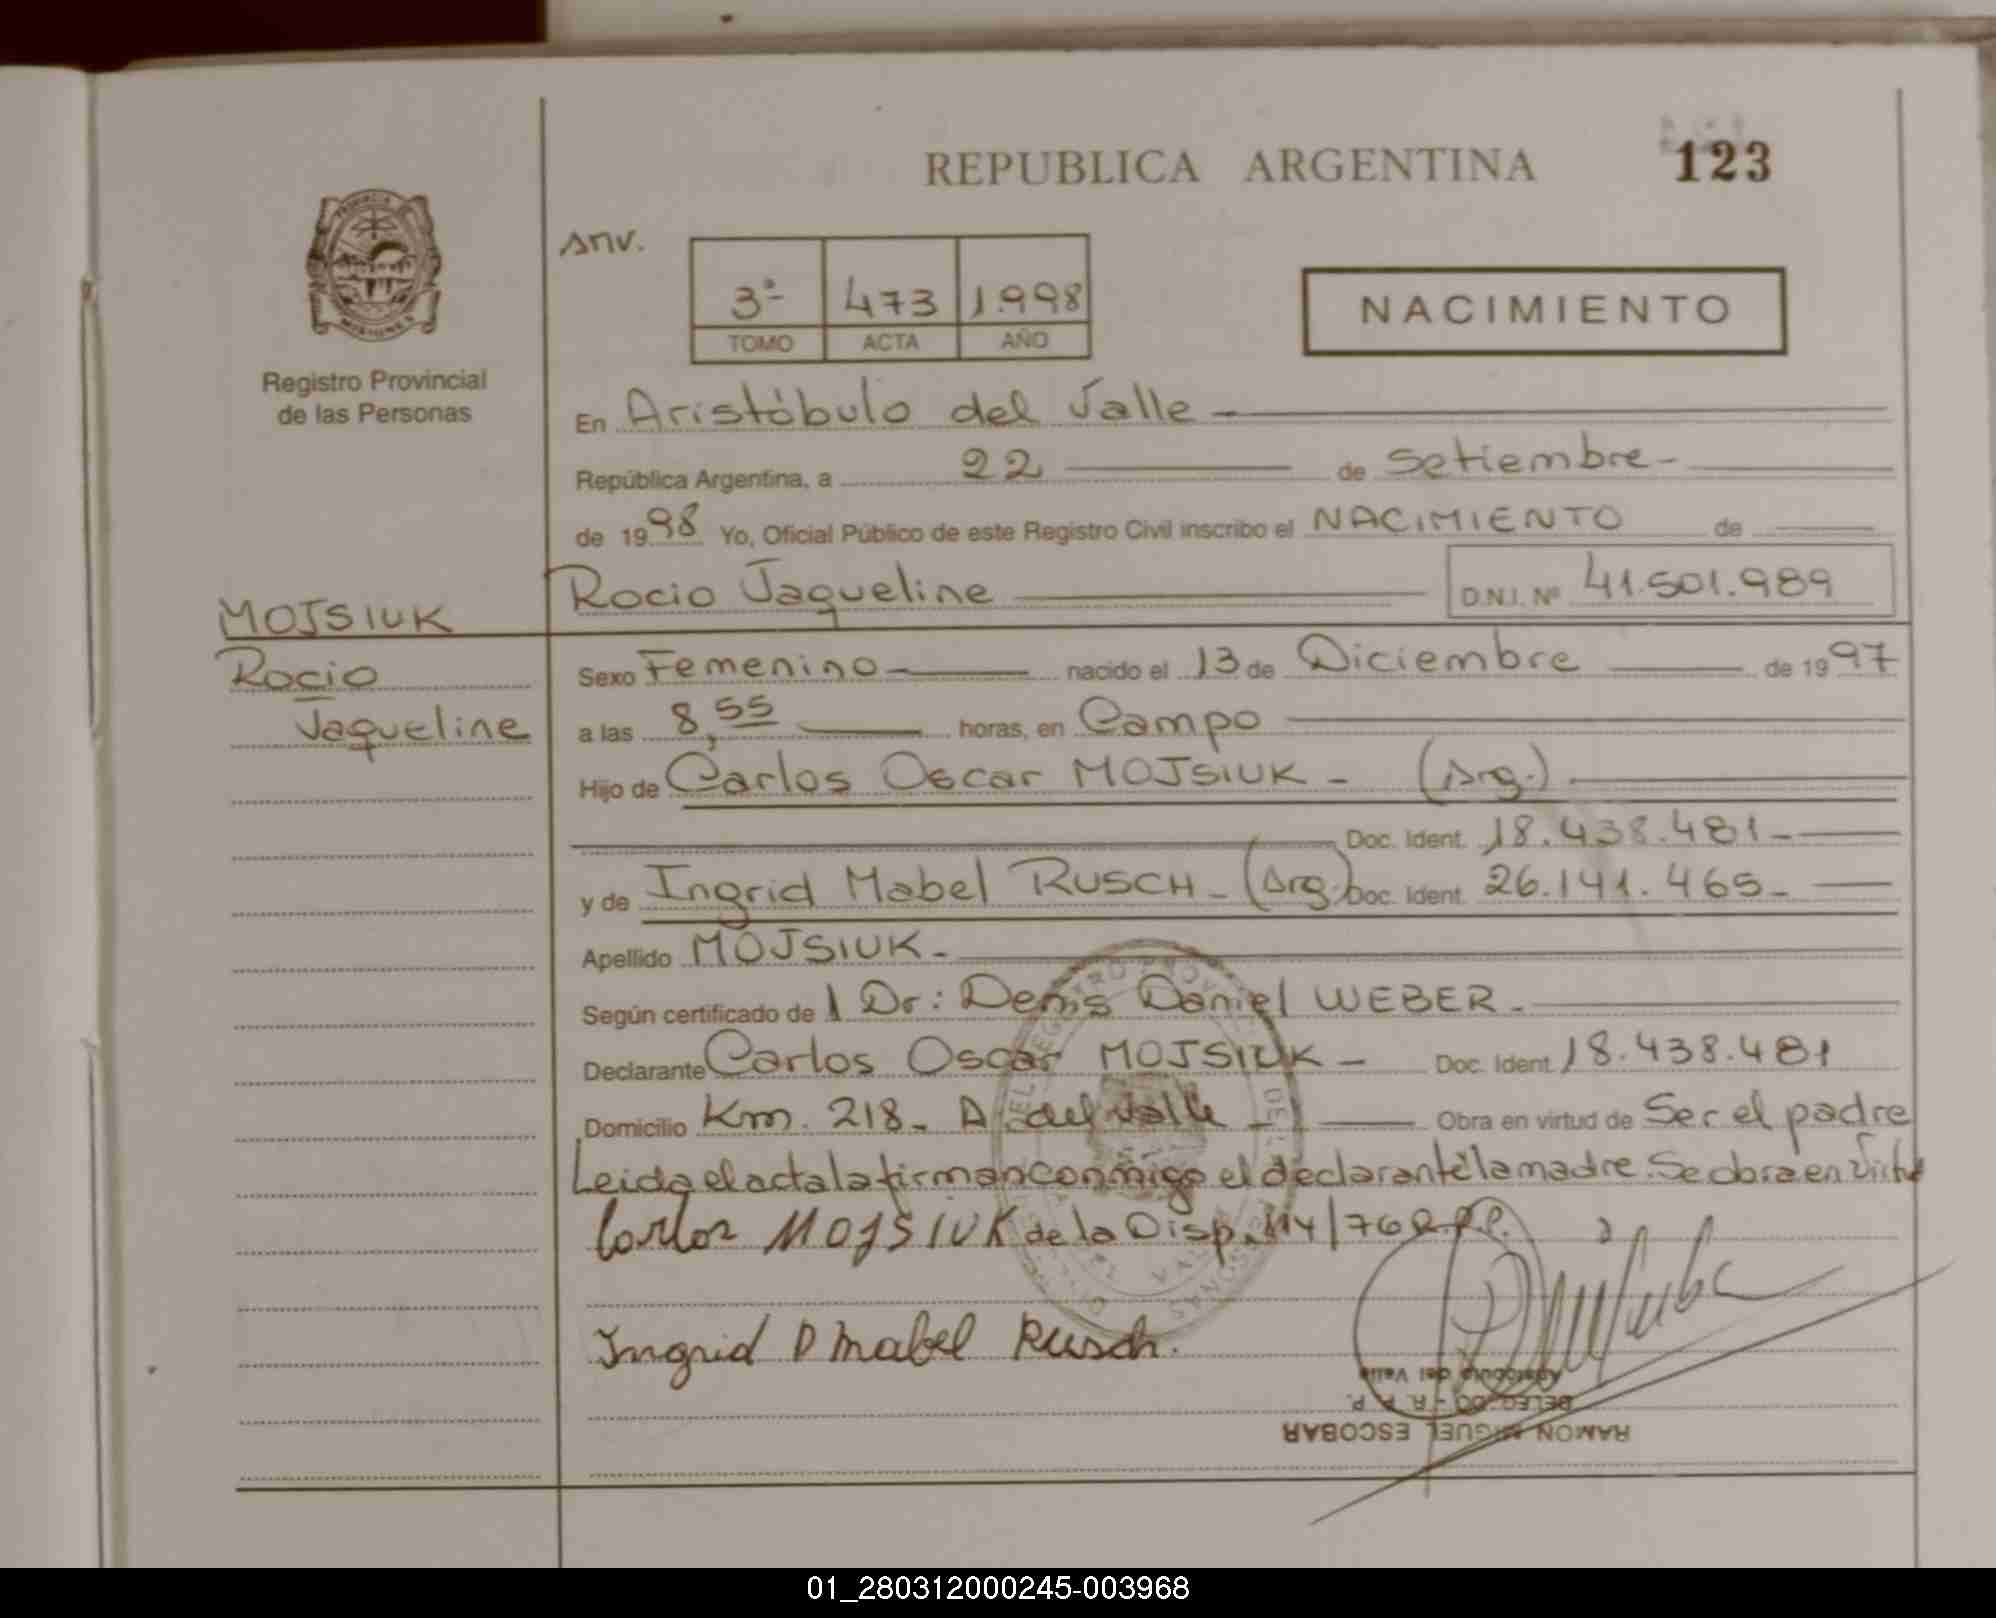 REPUBLICA ARGENTINA
123
PROVINCIA DE
MISIONES
Registro Provincial
de las Personas
3º 473 1.998
TOMO ACTA AÑO
NACIMIENTO
En Aristóbulo del Valle -
República Argentina, a 22 de Setiembre -
de 1998 Yo, Oficial Público de este Registro Civil inscribo el NACIMIENTO de
Rocio Jaqueline D.N.I. Nº 41.501.989
MOJSIUK
Rocio
Jaqueline
Sexo Femenino nacido el 13 de Diciembre de 1997
a las 8,55 horas, en Campo
Hijo de Carlos Oscar MOJSIUK - (Arg.)
Doc. Ident. 18.438.481 -
y de Ingrid Mabel RUSCH - (Arg.) Doc. Ident. 26.141.465 -
Apellido MOJSIUK -
Según certificado de l Dr: Denis Daniel WEBER -
Declarante Carlos Oscar MOJSIUK - Doc. Ident. 18.438.481
Domicilio Km. 218 - A. del Valle - Obra en virtud de Ser el padre
Leida el acta la firman conmigo el declarante la madre. Se obra en
Carlos MOJSIUK de la Disp. 114/76 R.P.P.
Ingrid Mabel Rusch.
Aristobulo del Valle
RAMON MIGUEL ESCOBAR
01_280312000245-003968